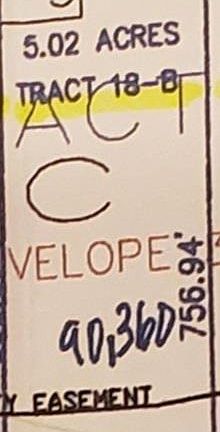 5.02 ACRES
TRACT 18-B
ACT
C
VELOPE
90,360
756.94'
EASEMENT